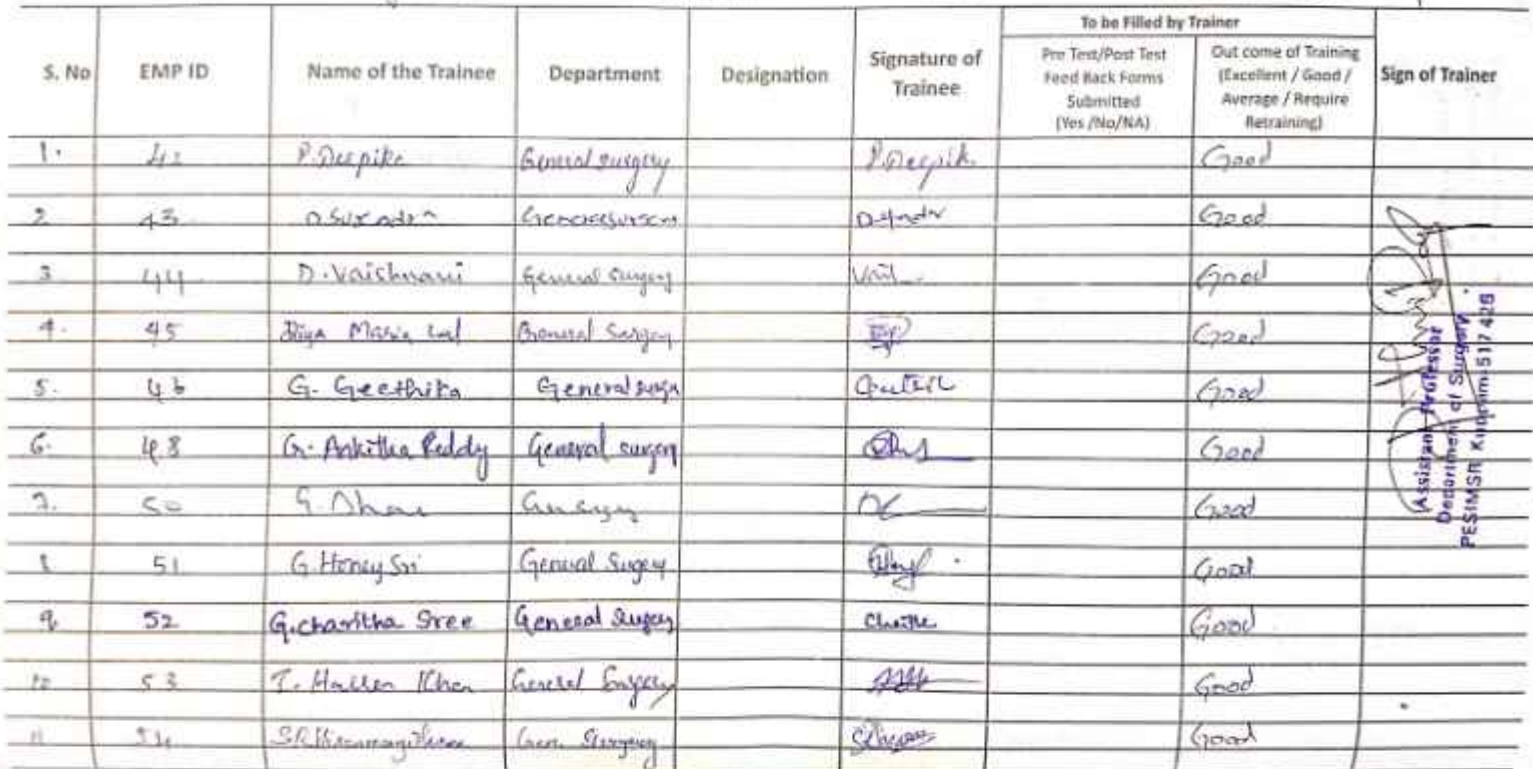 To be Filled by Trainer
S. No EMP ID Name of the Trainee Department Designation Signature of Trainee Pre Test/Post Test Feed Back Forms Submitted (Yes /No/NA) Out come of Training (Excellent / Good / Average / Require Retraining) Sign of Trainer
1. P. Deepika General surgery P. Deepik Good
2 43 D Surendra Good
3 44 D. Vaishnavi General Surgery Good
4. 45 Maria General Surgery Good
5. 46 G. Geethika General Good
6. 48 G. Ankitha Reddy General surgery Good
7. 50 G. Good
8 51 G. Honey Sri General Surgery Good
9. 52 G. charitha Sree General Surgery Good
10 53 T. Khan General Surgery Good
11 54 Gen. Surgery Good
Assistant Professor
Department of Surgery
PESIMSR Kuppam-517 425